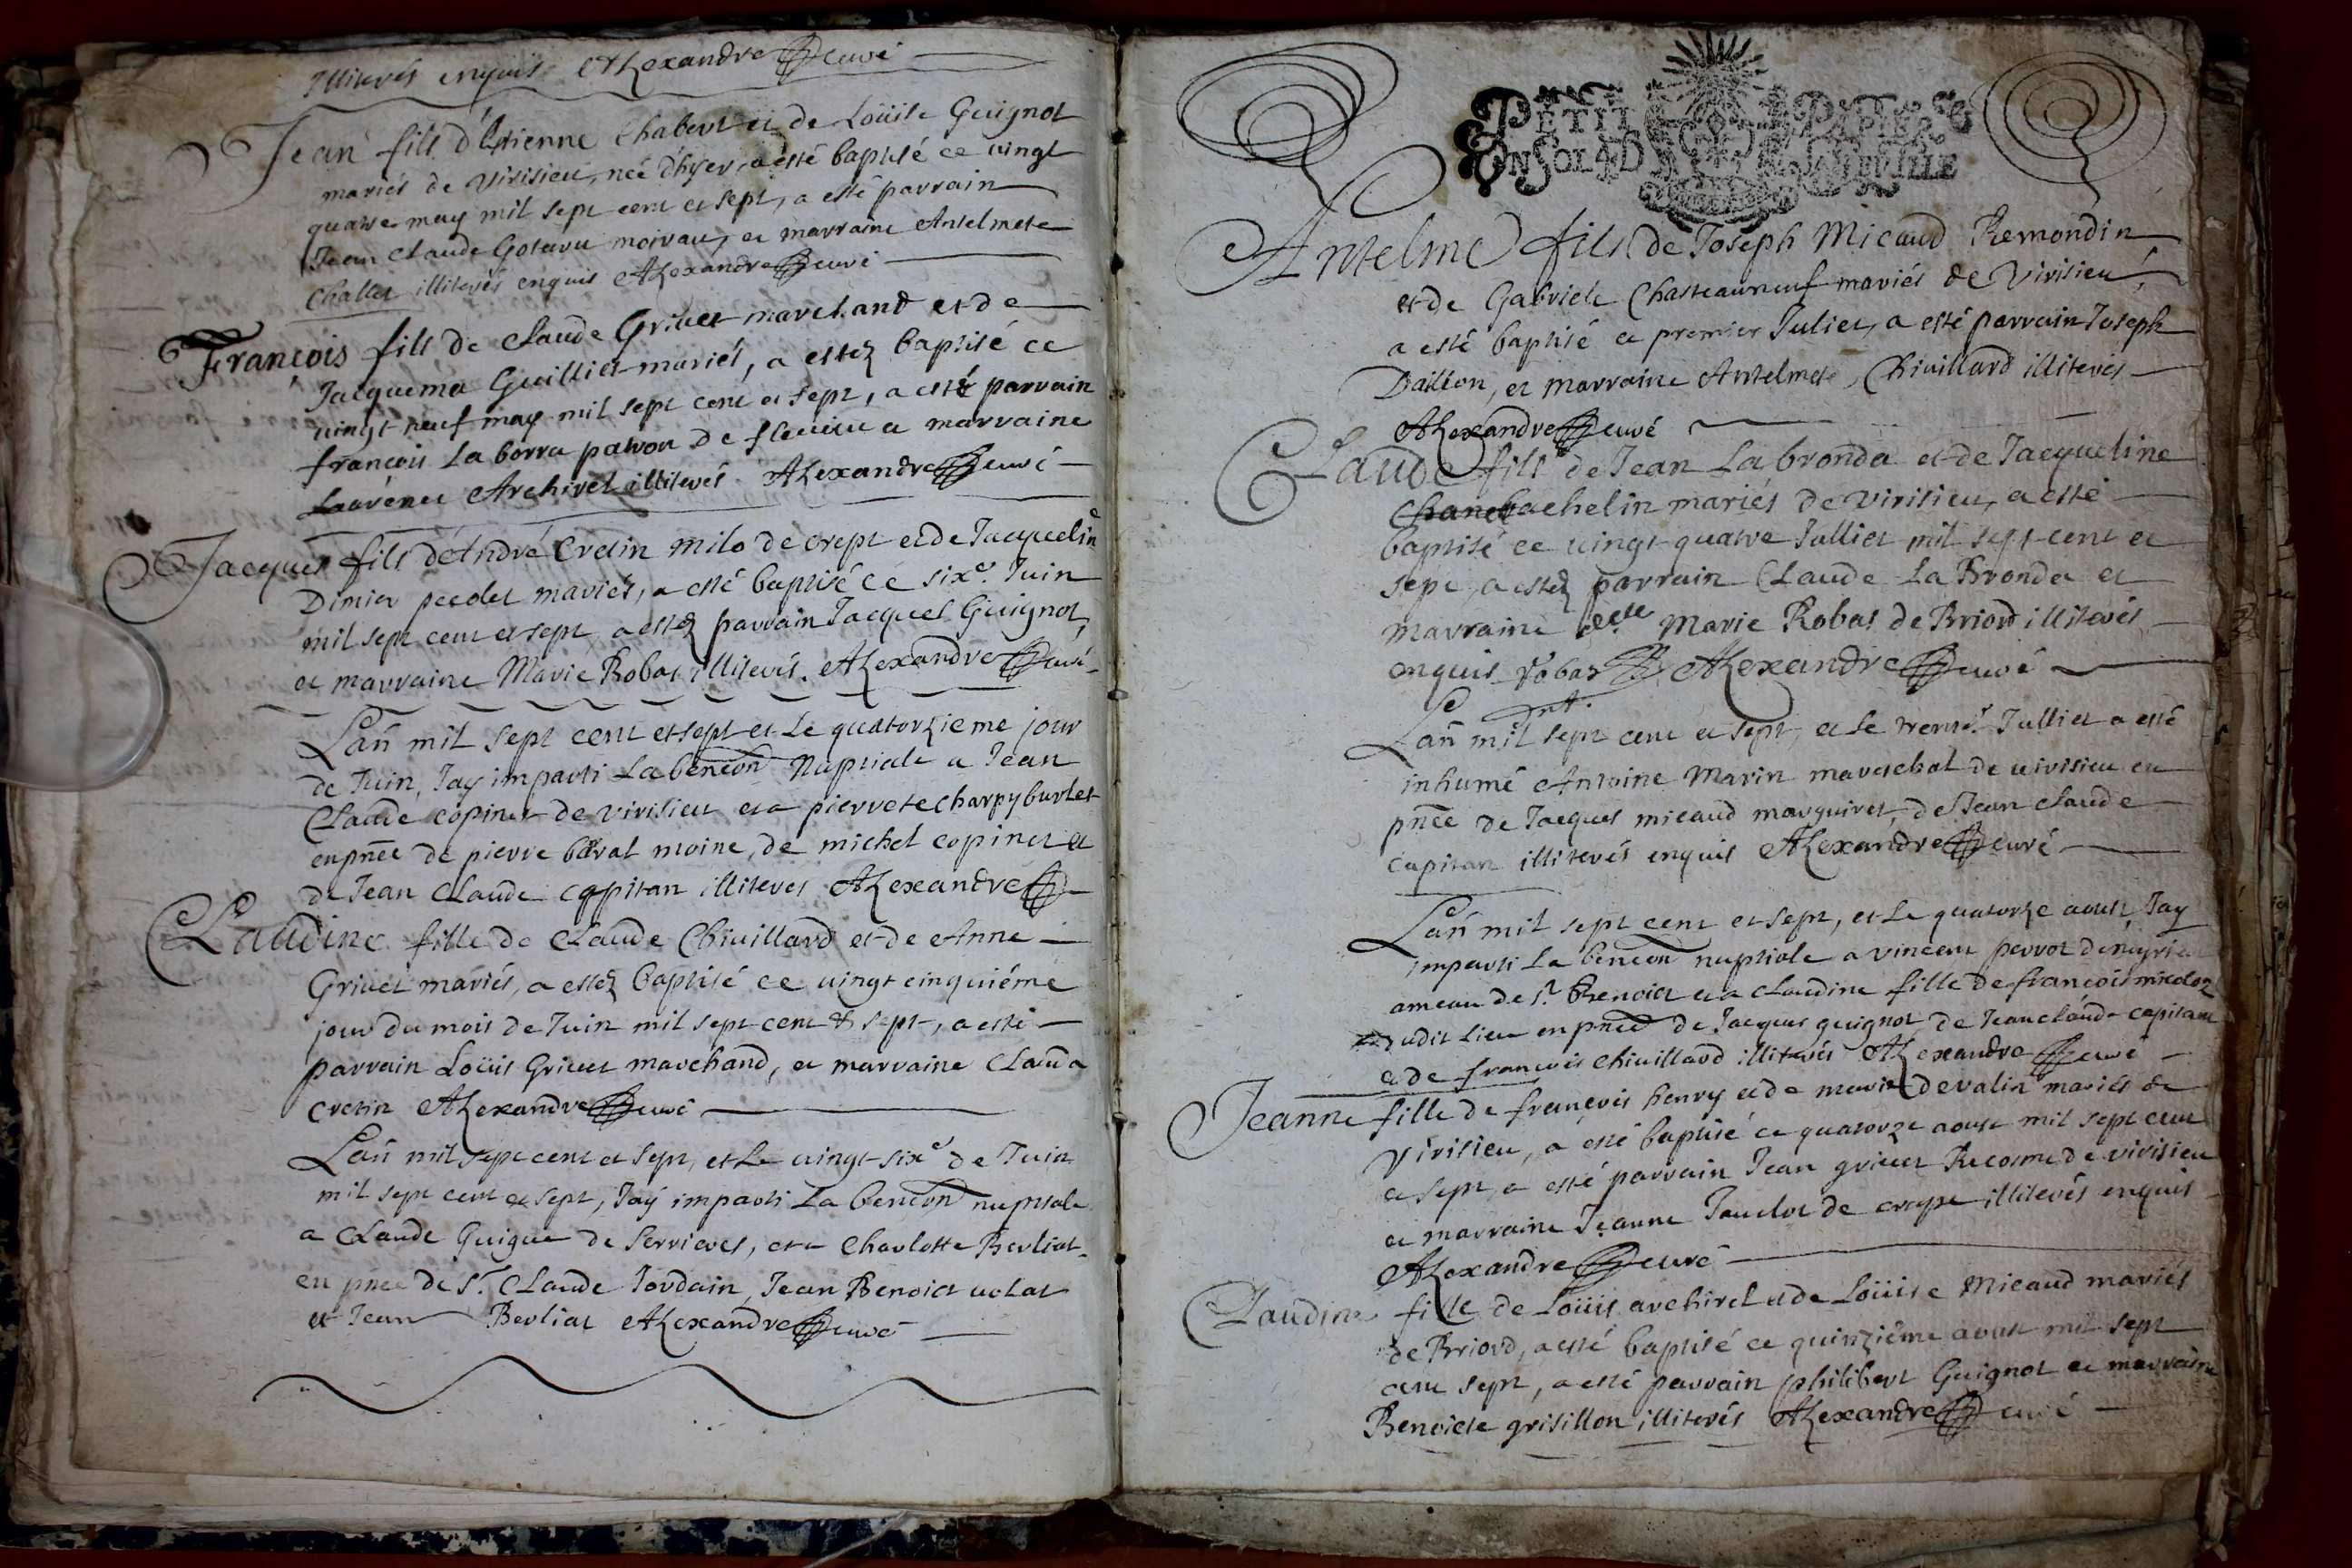 Illiterés enquis Alexandre curé
Jean fils d'Estienne Chabert et de Loüise Guignot
mariés de Virisieu, né d'hyer, a esté baptisé ce vingt
quatre may mil sept cent et sept, a esté parrain
Jean Claude moirau, et marraine Antelmete
Challet illiterés enquis Alexandre curé
François fils de Claude Grivet marchand et de
Jacquema Guilliet mariés, a estez baptisé ce
vingt neuf may mil sept cent et sept, a esté parrain
françois La borra patron de et marraine
Laurence Archirel illiterés Alexandre curé
Jacques fils d'André Cretin milo de crept et de Jacqueline
Dimier mariés, a esté baptisé ce sixe. Juin
mil sept cent et sept, a estez parrain Jacques Guignot,
et marraine Marie Robat illiterés. Alexandre curé
Lañ mil sept cent et sept et Le quatorzieme jour
de Juin, Jay imparti La benẽcon Nuptiale a Jean
Claude copinet de Virisieu et a pierrete charpy burlet
en pñce de pierre baral moine, de michel copinet et
de Jean Claude capitan illiterés Alexandre
Claudine fille de Claude Chivillard et de Anne
Grivet mariés, a estez baptisé ce vingt cinquiéme
jour du mois de Juin mil sept cent & sept, a esté
parrain Loüis Grivet marchand, et marraine Clauda
cretin Alexandre curé
Lañ mil sept cent et sept, et Le vingt sixe de Juin
mil sept cent et sept, Jay imparti La benẽcon nuptiale
a Claude Guigue de Serrieres, et a Charlotte Berliat
en pñce de Sr. Claude Jordain, Jean Benoict volat
et Jean Berliat Alexandre curé
PETIT PAPIER
UN SOL 4 D LA FEUILLE
Antelme fils de Joseph Micaud Remondin
et de Gabriele Chasteauneuf mariés de Virisieu,
a esté baptisé ce premier Juliet, a esté parrain Joseph
Daillon, et marraine Antelmete Chivillard illiterés
Alexandre curé
Claude fils de Jean La bronda et de Jacqueline
bachelin mariés de virisieu, a esté
baptisé ce vingt quatre Julliet mil sept cent et
sept, a estez parrain Claude La Bronda et
marraine delle Marie Robat de Briord illiterés
enquis Robat Alexandre curé
Lañ mil sept cent et sept, et le trente Julliet a esté
inhumé Antoine Marin mareschal de virisieu en
pñce de Jacques micaud marguiret, de Jean Claude
capitan illiterés enquis Alexandre curé
Lañ mil sept cent et sept, et Le quatorze aoust Jay
imparti La benẽcon nuptiale a vincent perrot
ameau de st. Benoict et a Claudine fille de françois
dudit Lieu en pñce de Jacques guignot de Jean claude capitan
et de françois chivillard illiterés Alexandre curé
Jeanne fille de françois henry et de marie devalin mariés de
Virisieu, a esté baptisé ce quatorze aoust mil sept cent
et sept, a esté parrain Jean grivet Recorne de virisieu
et marraine Jeanne de crept illiterés enquis
Alexandre curé
Claudine fille de Loüis archirel et de Loüise Micaud mariés
de Briord, a esté baptisé ce quinziéme aoust mil sept
cent sept, a esté parrain philibert Guignot et marraine
Benoicte grisillon illiterés Alexandre curé